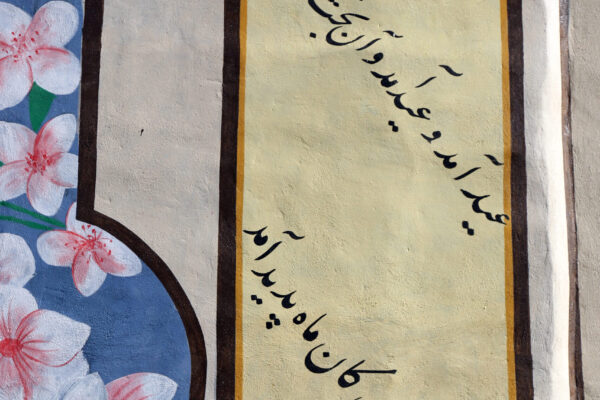 عید آمد و عید آمد و آن بخت
کان ماه پدید آمد